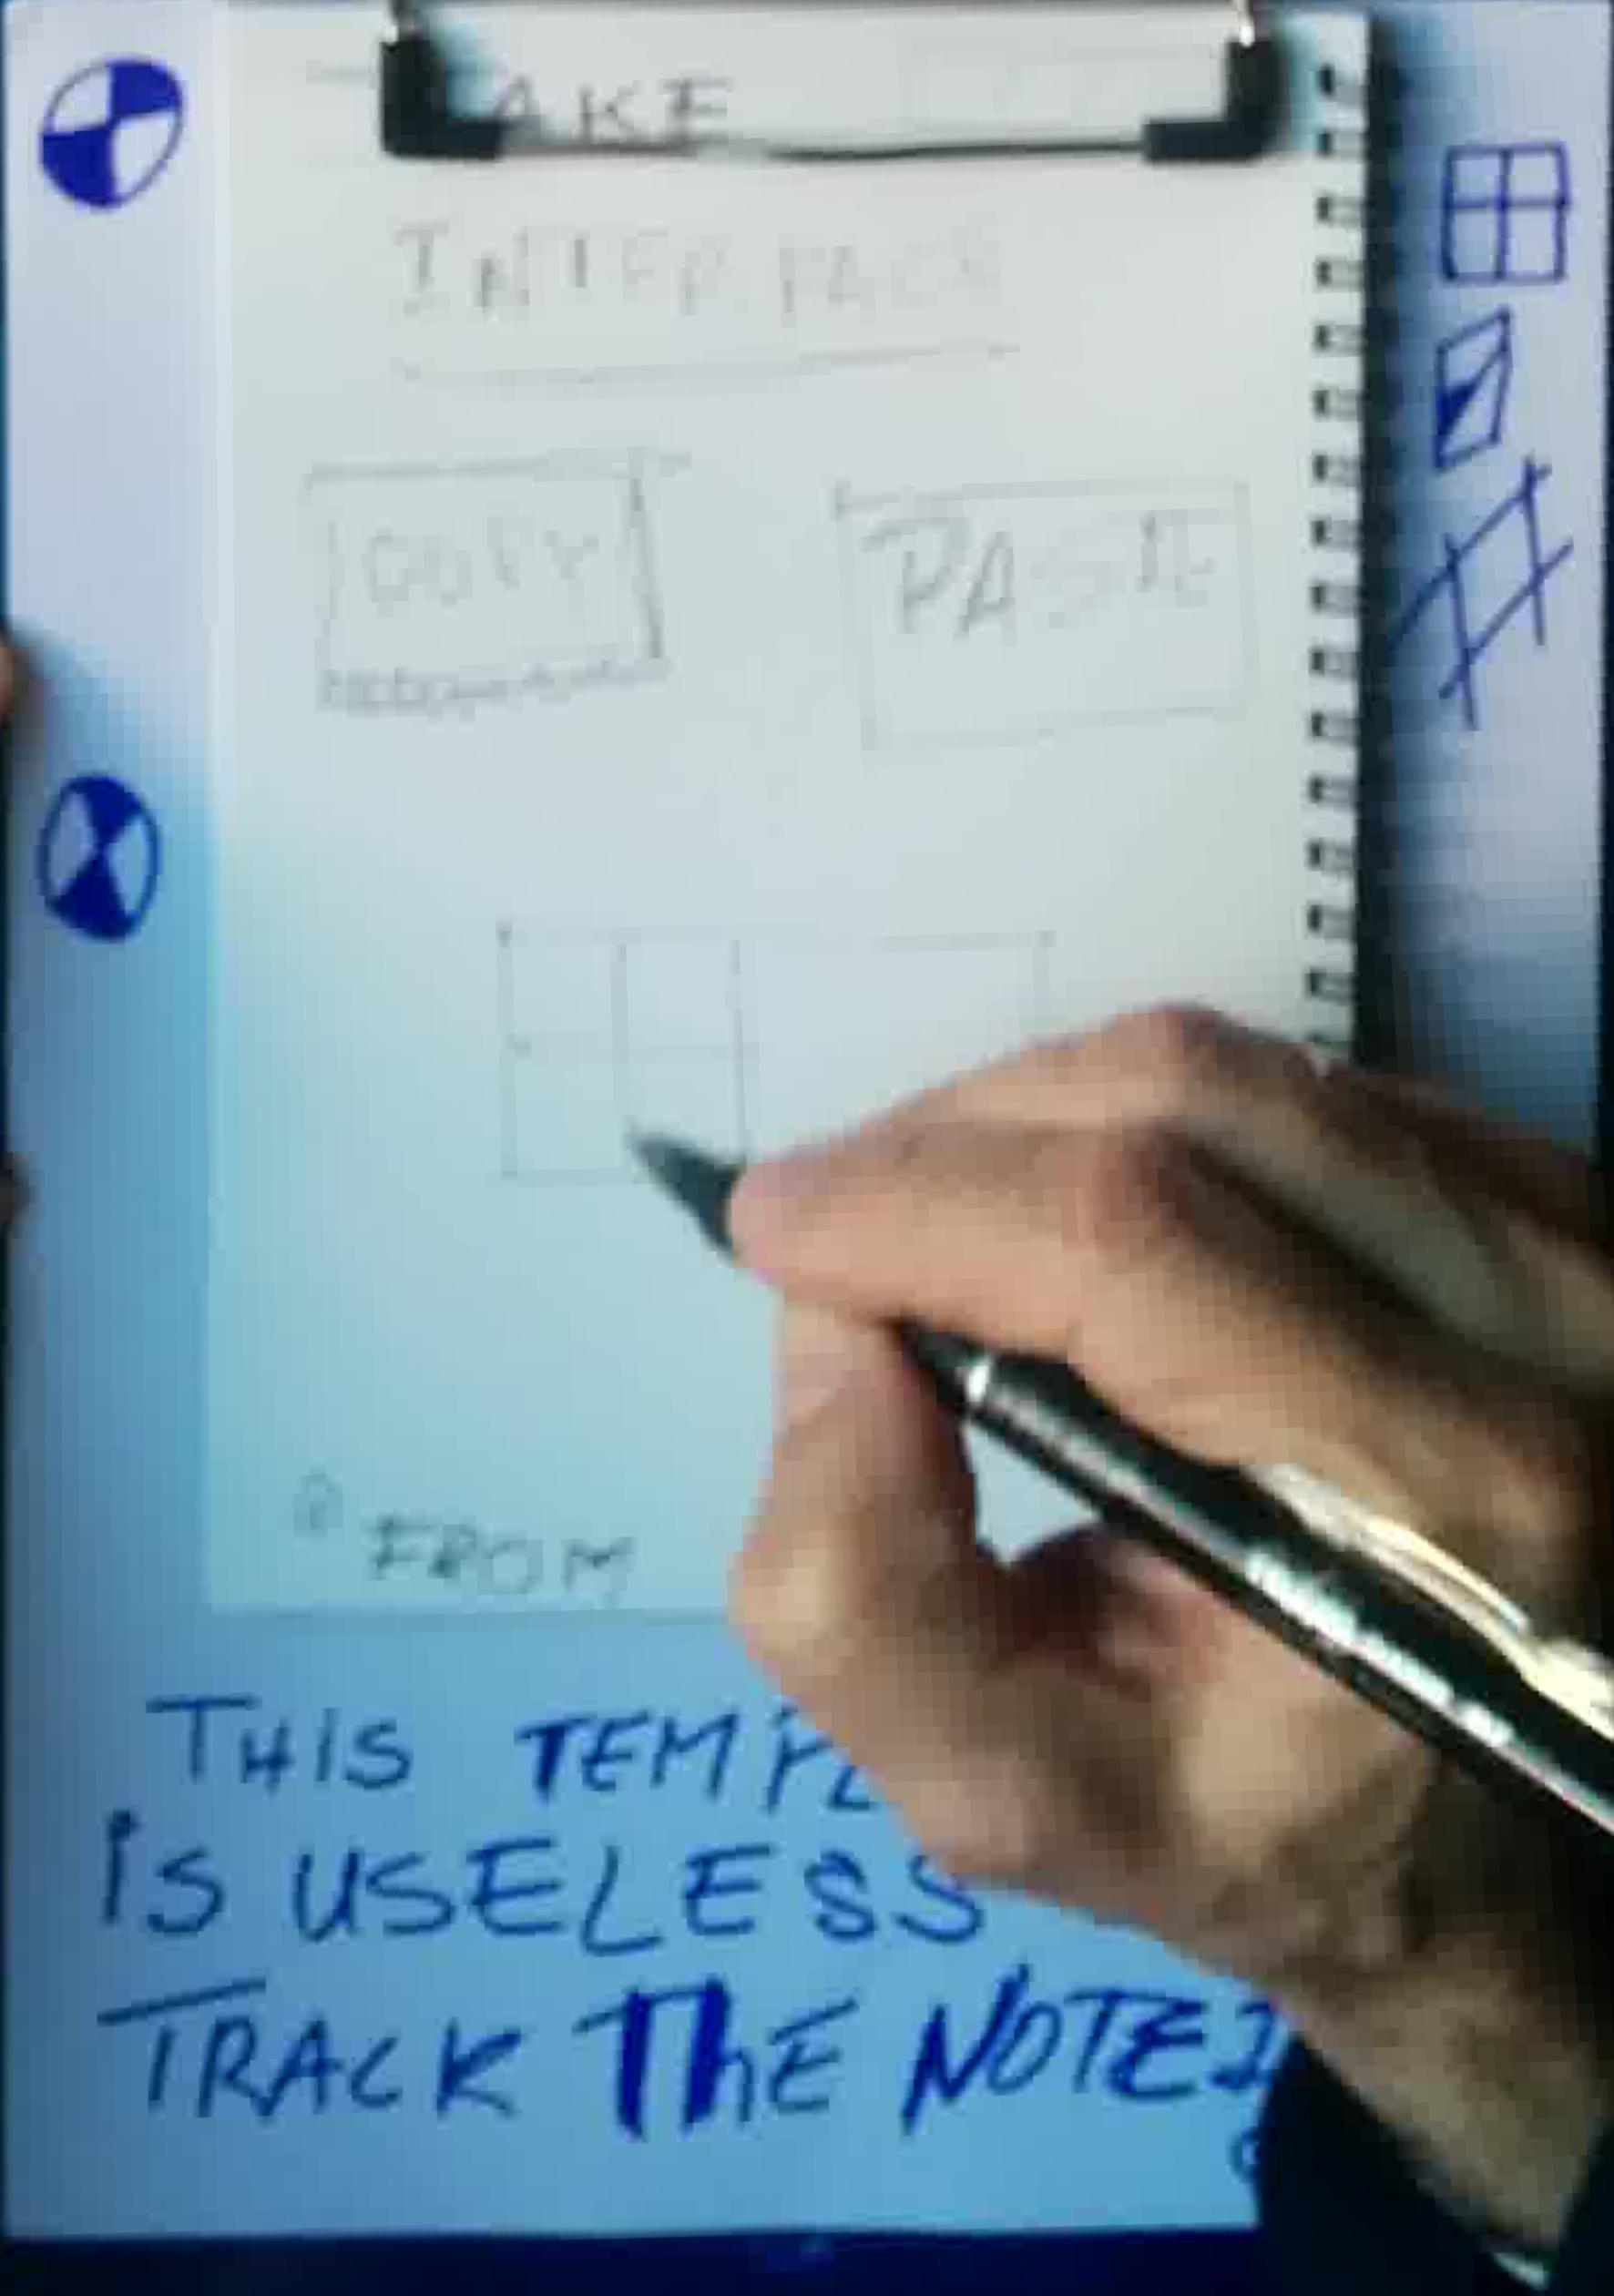 AKE
INTERFACE
COPY
PASTE
FROM
THIS TEMPL
iS USELESS
TRACK ThE NOTE